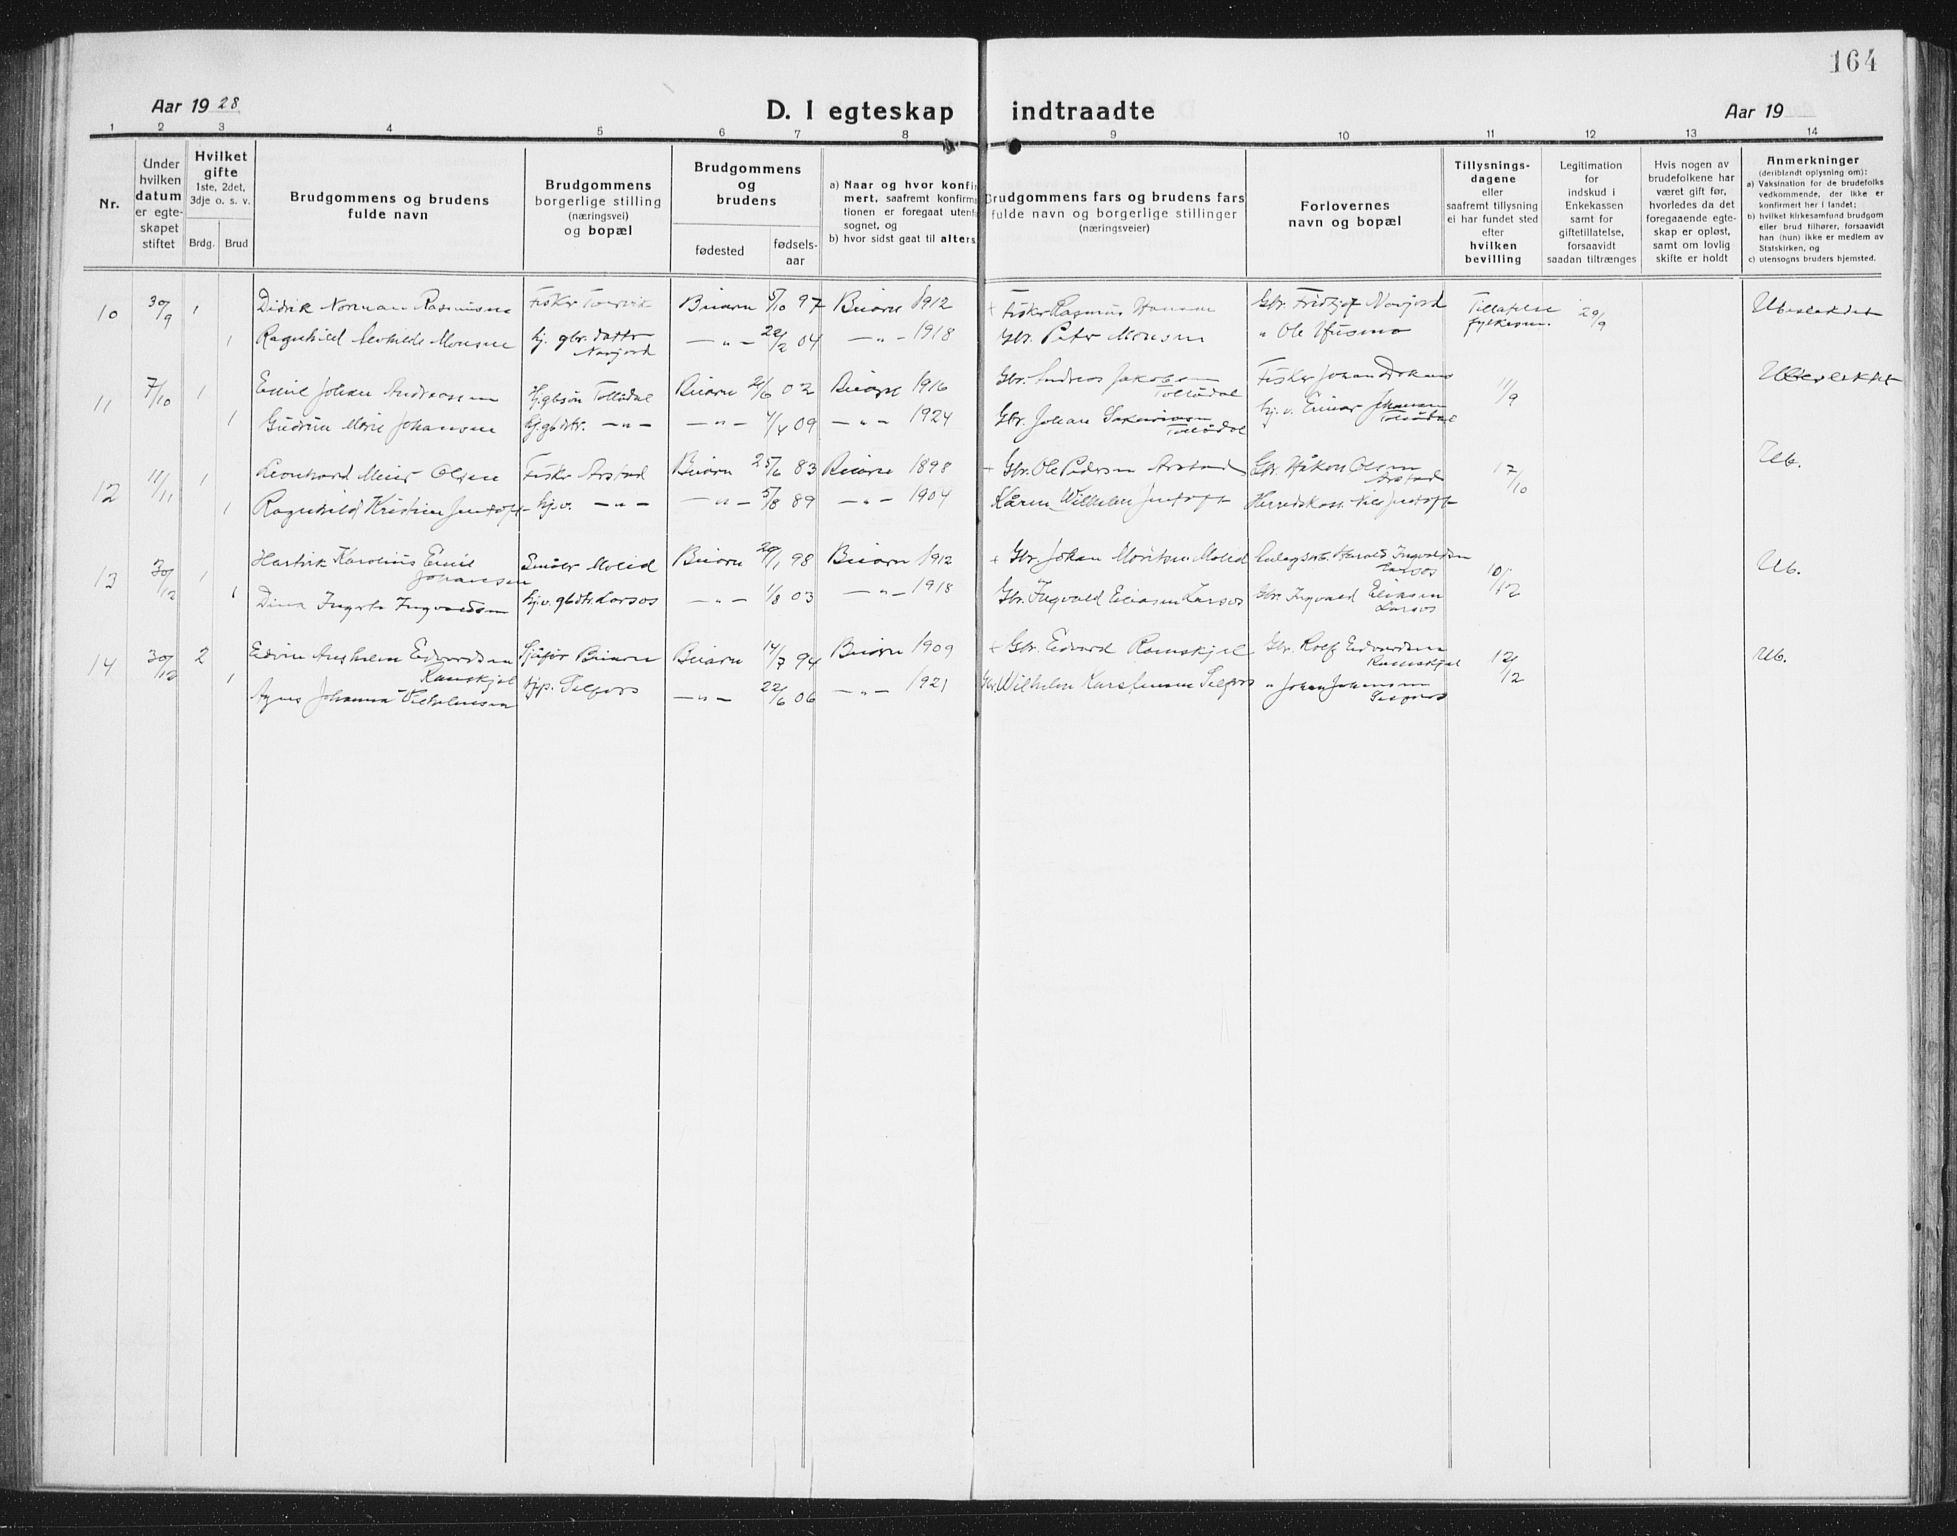 164
Aar 19 28
D. I egteskap indtraadte
Aar 19
1 2 3 4 5 6 7 8 9 10 11 12 13 14
Nr.
Under hvilken datum er egteskapet stiftet
Hvilket gifte
1ste, 2det, 3dje o. s. v.
Brdg. Brud
Brudgommens og brudens fulde navn
Brudgommens borgerlige stilling (næringsvei) og bopæl
Brudgommens og brudens
fødested
fødsels-aar
a) Naar og hvor konfi
mert, saafremt konfirma
tionen er foregaat utenfo
sognet, og
b) hvor sidst gaat til alters
Brudgommens fars og brudens fars
fulde navn og borgerlige stillinger
(næringsveier)
Forlovernes
navn og bopæl
Tillysnings-
dagene
eller
saafremt tillysning
ei har fundet sted
efter
hvilken
bevilling
Legitimation
for
indskud i
Enkekassen
samt for
giftetillatelse,
forsaavidt
saadan tiltrænges
Hvis nogen av
brudefolkene har
været gift før,
hvorledes da det
foregaaende egte-
skap er opløst,
samt om lovlig
skifte er holdt
Anmerkninger
(deriblandt oplysning om):
a) Vaksination for de brudefolks
vedkommende, der ikke er
konfirmert her i landet;
b) hvilket kirkesamfund brudgom
eller brud tilhører, forsaavidt
han (hun) ikke er medlem av
Statskirken, og
c) utensogns bruders hjemsted.
10 30/9 1 Didrik Norman Rasmussen Fisker Tvervik Beiarn 5/10 97 Beiarn 1912 + Fisker Rasmus Hansen Gbr. Fridtjof Navjord Tillatelse fylkesm. 29/9 Ubeslektet
1 Ragnhild Monsen hj. gbr. datter Navjord — „ — 22/2 04 — „ — 1918 Gbr. Peter Monsen „ Ole Husmo
11 7/10 1 Emil Johan Andreassen Hj. gbsøn Tollådal Beiarn 2/6 02 Beiarn 1916 Gbr. Andreas Jakobsen Tollådal Fisker Johan 11/9 Ubeslektet
1 Gudrun Marie Johansen hj. gbdtr. — „ — — „ — 4/4 09 — „ — 1924 Gbr. Johan Tollådal hj. v. Einar Johansen Tollådal
12 11/11 1 Leonhard Meier Olsen Fisker Arstad Beiarn 25/6 83 Beiarn 1898 + Gbr. Ole Pedersen Arstad Gbr. Håkon Olsen Arstad 17/10 Ub.
1 Ragnhild Kristine Jentoft hj. v. — „ — — „ — 5/8 89 — „ — 1904 Wilhelm Jentoft Herredskass. Nils Jentoft
13 30/12 1 Hartvik Karolius Emil Johansen Moleid Beiarn 29/1 98 Beiarn 1912 + Gbr. Johan Moritsen Moleid Anlegsarb. Harald Ingvaldsen Larsos 10/12 Ub.
1 Dina Ingvaldsen hj. v. gbdtr. Larsos — „ — 1/8 03 — „ — 1918 Gbr. Ingvald Eliasen Larsos Gbr. Ingvald Eliasen Larsos
14 30/12 2 Edvin Anshelm Edvardsen Ramskjel Sjåfør Beiarn Beiarn 14/7 94 Beiarn 1909 + Gbr. Edvard Ramskjel Gbr. Rolf Edvardsen Ramskjel 12/12 Ub.
1 Agnes Johanna Vilhelmsen hjp. Selfors — „ — 22/6 06 — „ — 1921 Gbr. Wilhelm Karstensen Selfors „ Johan Johansen Selfors